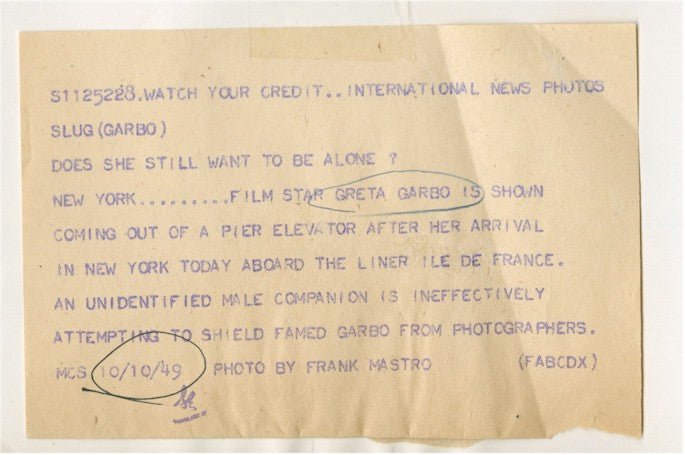 S1125228.WATCH YOUR CREDIT..INTERNATIONAL NEWS PHOTOS
SLUG(GARBO)
DOES SHE STILL WANT TO BE ALONE ?
NEW YORK.........FILM STAR GRETA GARBO IS SHOWN
COMING OUT OF A PIER ELEVATOR AFTER HER ARRIVAL
IN NEW YORK TODAY ABOARD THE LINER ILE DE FRANCE.
AN UNIDENTIFIED MALE COMPANION IS INEFFECTIVELY
ATTEMPTING TO SHIELD FAMED GARBO FROM PHOTOGRAPHERS.
MCS 10/10/49 PHOTO BY FRANK MASTRO (FABCDX)